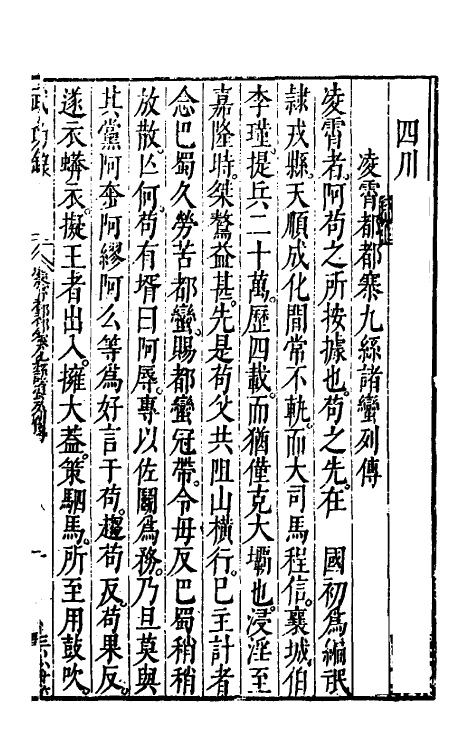 四川
凌霄都都寨九絲諸蠻列傳
凌霄者阿苟之所按據也苟之先在 國初爲編氓
隷戎縣天順成化間常不軌而大司馬程信襄城伯
李瑾提兵二十萬歷四載而猶僅克大壩也浸淫至
嘉隆時桀驁益甚先是苟父共阻山橫行已主計者
念巴蜀久勞苦都蠻賜都蠻冠帶令毋反巴蜀稍稍
放散亾何苟有壻曰阿辱專以佐鬭爲務乃旦莫與
其黨阿奎阿繆阿么等爲好言于苟趨苟反苟果反
遂衣蟒衣擬王者出入擁大葢策駟馬所至用鼓吹
武功錄